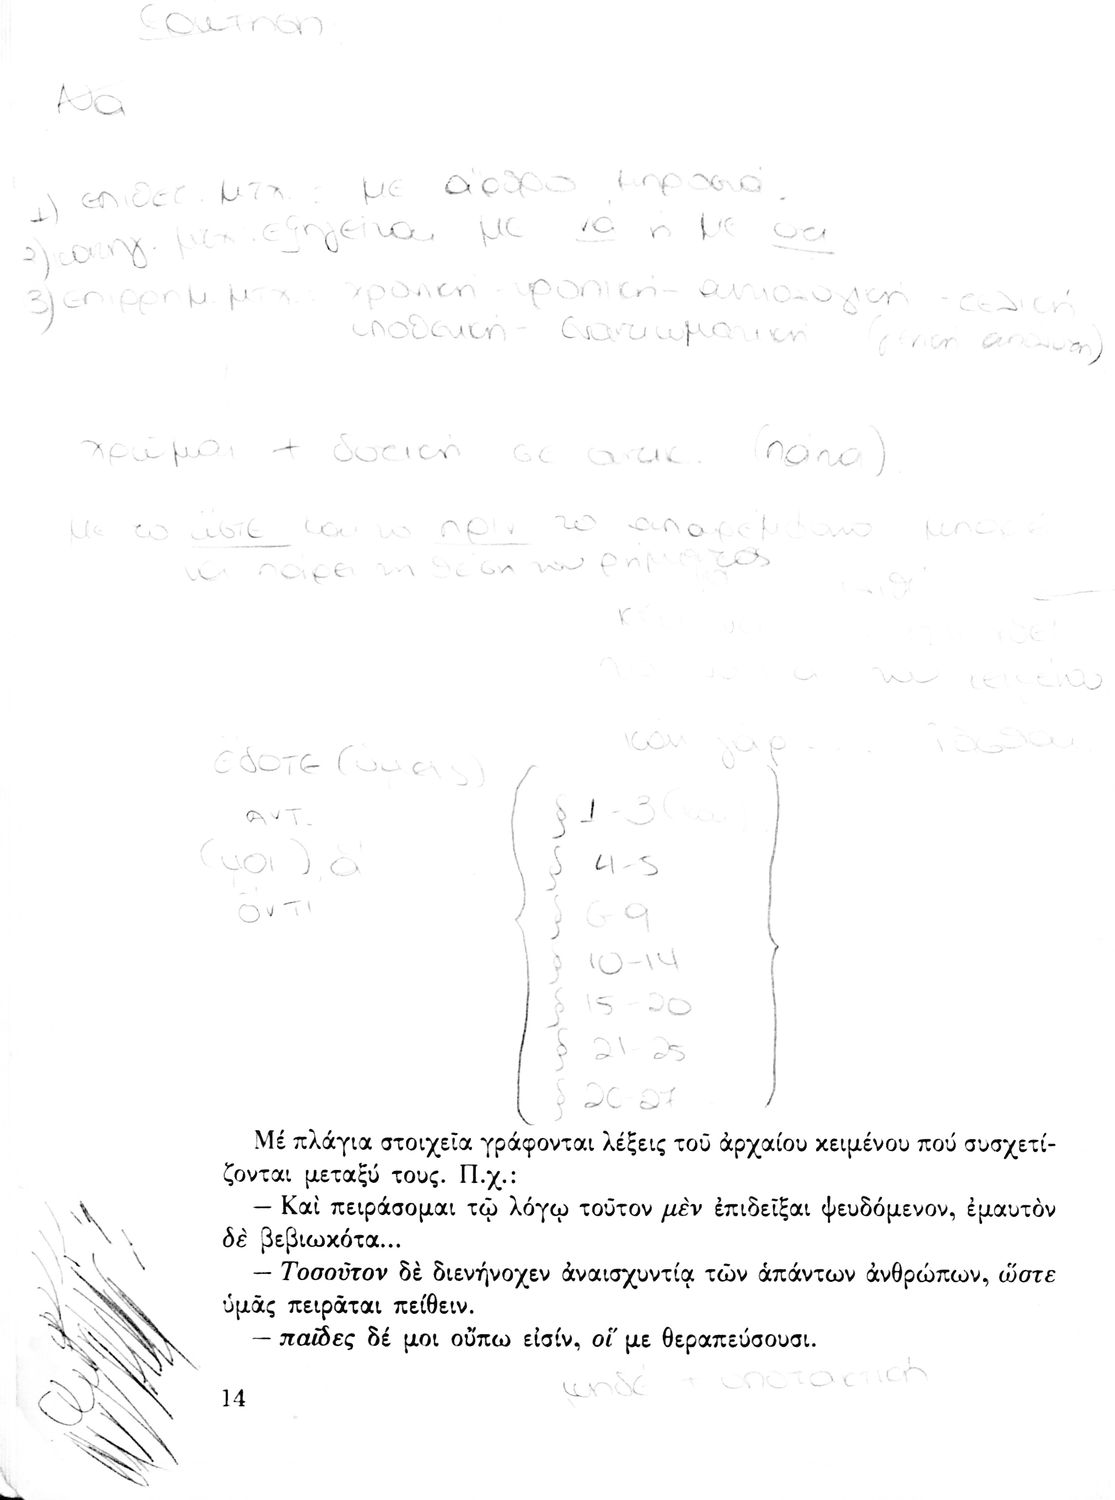 Ερώτηση
1) επιθετ. μτχ. : με άρθρο μπροστά.
2) κατηγ. μτχ. : εξηγείται με να ή με οτι
3) επιρρημ. μτχ. : χρονική - τροπική - αιτιολογική - τελική
υποθετική - εναντιωματική (γενική απόλυτη)
χρώμαι + δοτική σε αντικ. (πάντα)
Με το ὥστε και το πρίν το απαρέμφατο μπορεί
να πάρει τη θέση του ρήματος
του κειμένου
και γάρ ....
ἔδοτε (ὑμεῖς)
αντ.
(μοι)
ὄντι
§ 1-3
§ 4-5
§ 6-9
§ 10-14
§ 15-20
§ 21-25
§ 26-27
Μέ πλάγια στοιχεῖα γράφονται λέξεις τοῦ ἀρχαίου κειμένου πού συσχετί-
ζονται μεταξύ τους. Π.χ.:
— Καὶ πειράσομαι τῷ λόγῳ τοῦτον μὲν ἐπιδεῖξαι ψευδόμενον, ἐμαυτὸν
δὲ βεβιωκότα...
— Τοσοῦτον δὲ διενήνοχεν ἀναισχυντίᾳ τῶν ἁπάντων ἀνθρώπων, ὥστε
ὑμᾶς πειρᾶται πείθειν.
— παῖδες δέ μοι οὔπω εἰσίν, οἵ με θεραπεύσουσι.
μηδέ + υποτακτική
14